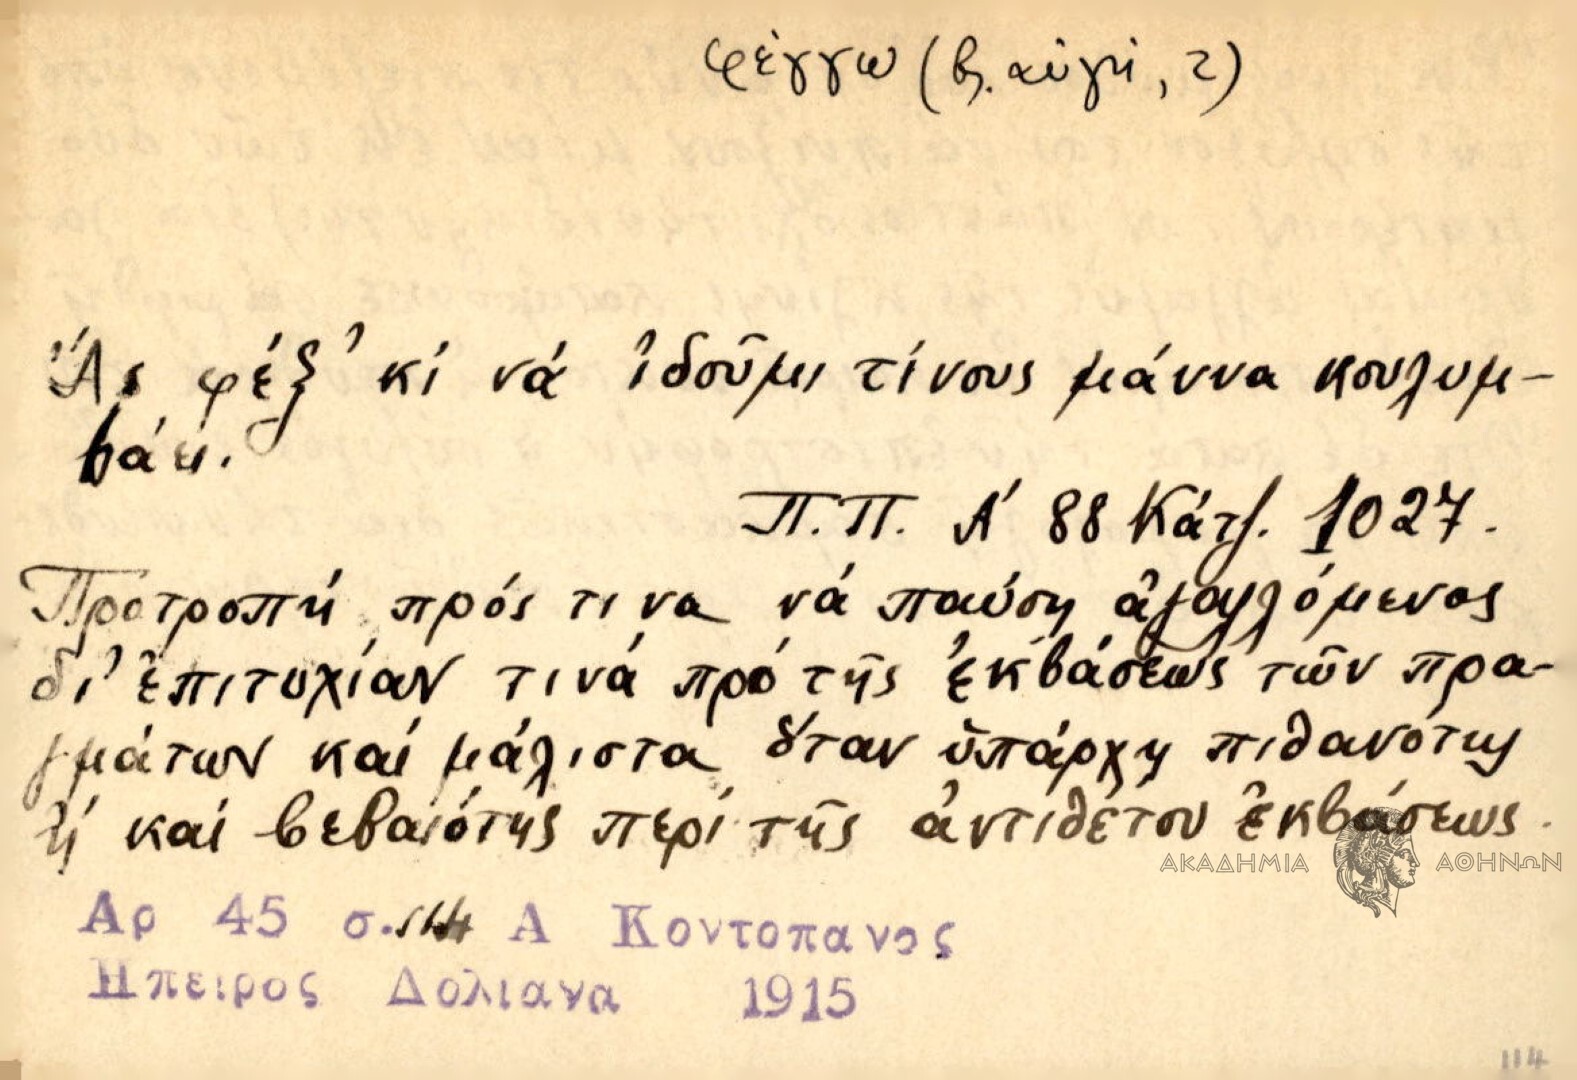 φέγγω (βλ. αὐγή, 2)
Ἄς φέξ' κί νά ἰδοῦμι τίνους μάννα κουλυμ-
βάει.
Π.Π. Α' 88 Κάτζ. 1027.
Προτροπή πρός τινα νά παύσῃ ἀγαλλόμενος
δι' ἐπιτυχίαν τινά πρό τῆς ἐκβάσεως τῶν πρα-
γμάτων καί μάλιστα ὅταν ὑπάρχῃ πιθανότης
ἤ καί βεβαιότης περί τῆς ἀντιθέτου ἐκβάσεως.
ΑΚΑΔΗΜΙΑ ΑΘΗΝΩΝ
Αρ 45 σ. 114 Α Κοντοπανος
Ηπειρος Δολιανα 1915
114